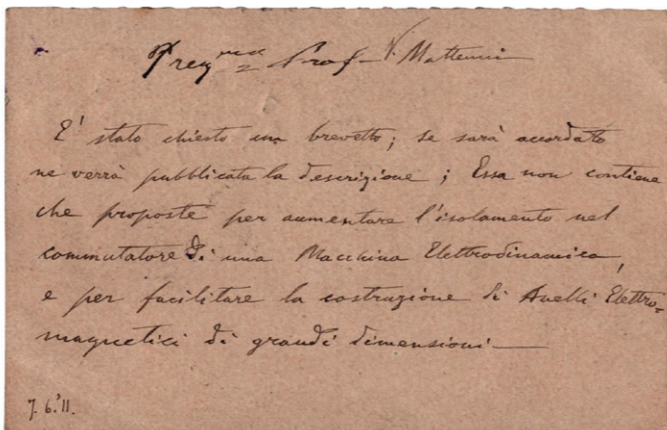 Preg.mo Prof. V. Matteucci
E' stato chiesto un brevetto; se sarà accordato
ne verrà pubblicata la descrizione; Essa non contiene
che proposte per aumentare l'isolamento nel
commutatore di una Macchina Elettrodinamica,
e per facilitare la costruzione di Anelli Elettro=
magnetici di grandi dimensioni—
7.6.'11.